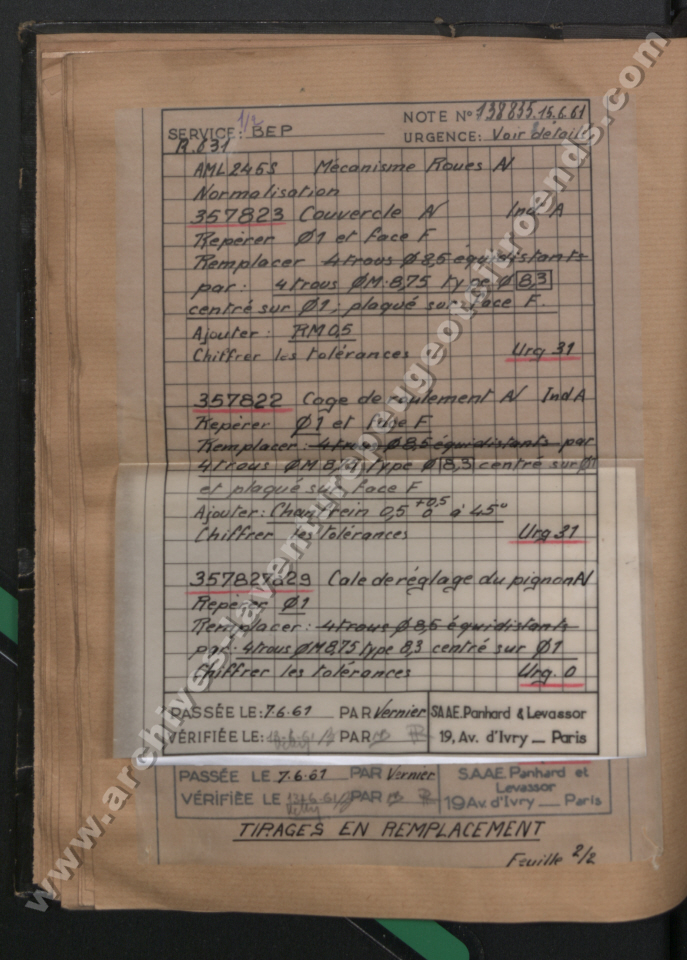 1/2
SERVICE: BEP
NOTE N° 138835.15.6.61
URGENCE: Voir détails
R.631
AML 245S Mécanisme Roues N
Normalisation
357823 Couvercle N Ind A
Repèrer Ø1 et face F
Remplacer 4 trous Ø 8,5 équidistants
par: 4 trous ØM.8,75 type Ø 8,3
centré sur Ø1; plaqué sur face F.
Ajouter: RM 0,5
Chiffrer les tolérances Urg 31
357822 Cage de roulement N Ind A
Repèrer Ø1 et face F
Remplacer: 4 trous Ø 8,5 équidistants par
4 trous ØM 8,75 type Ø 8,3 centré sur Ø1
et plaqué sur face F
Ajouter: Chanfrein 0,5 +0,5 0 à 45°
Chiffrer les tolérances Urg 31
357827à829 Cale de réglage du pignon N
Repèrer Ø1
Remplacer: 4 trous Ø 8,5 équidistants
par: 4 trous ØM 8,75 type 8,3 centré sur Ø1
Chiffrer les tolérances Urg. 0
PASSÉE LE: 7.6.61 PAR Vernier
VÉRIFIÉE LE: PAR
S.A.A.E. Panhard & Levassor
19, Av. d'Ivry _ Paris
PASSÉE LE 7.6.61 PAR Vernier
VÉRIFIÉE LE PAR
S.A.A.E. Panhard et
Levassor
19 Av. d'Ivry _ Paris
TIRAGES EN REMPLACEMENT
Feuille 2/2
www.archives-laventurepeugeotcitroends.com